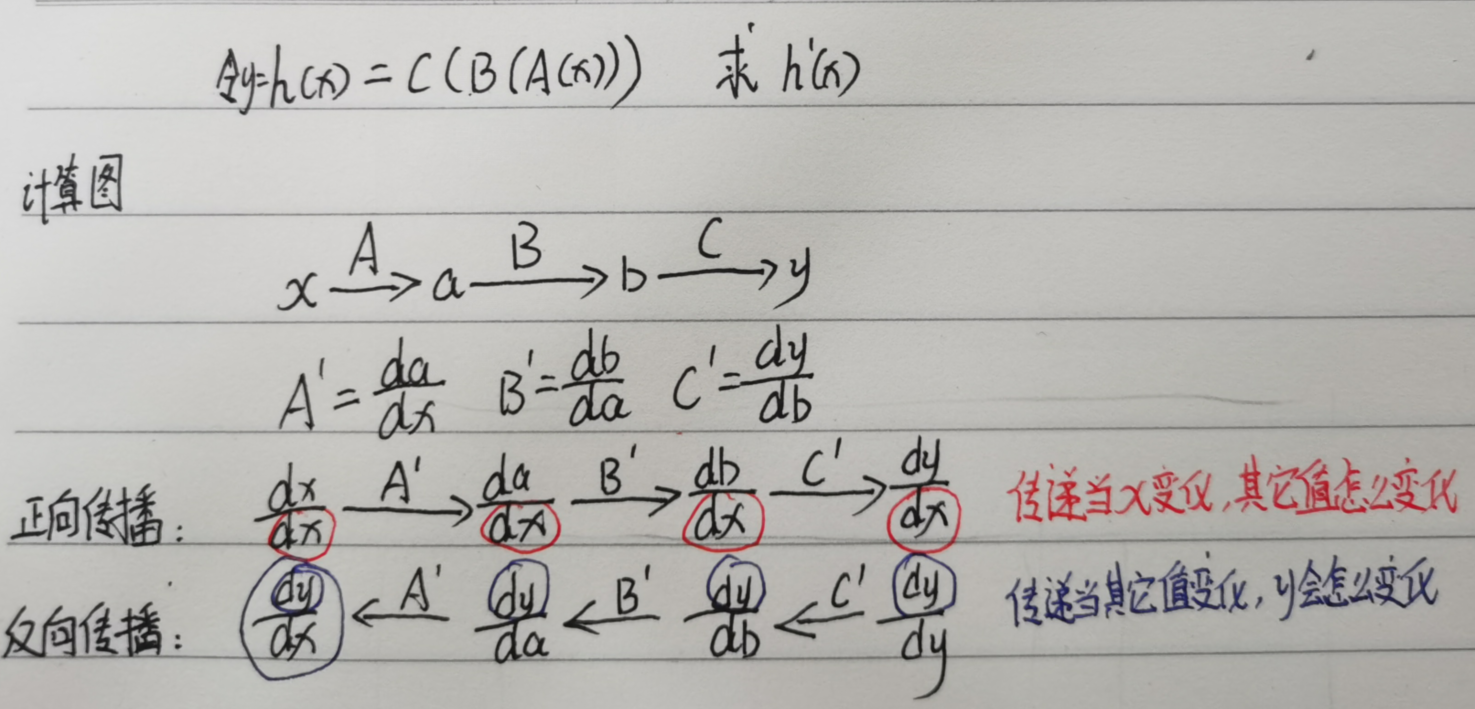 令y=h(x)=C(B(A(x))) 求 h'(x)
计算图
x —A→ a —B→ b —C→ y
A'=da/dx B'=db/da C'=dy/db
正向传播: dx/dx —A'→ da/dx —B'→ db/dx —C'→ dy/dx 传递当x变化,其它值怎么变化
反向传播: dy/dx ←A'— dy/da ←B'— dy/db ←C'— dy/dy 传递当其它值变化,y会怎么变化